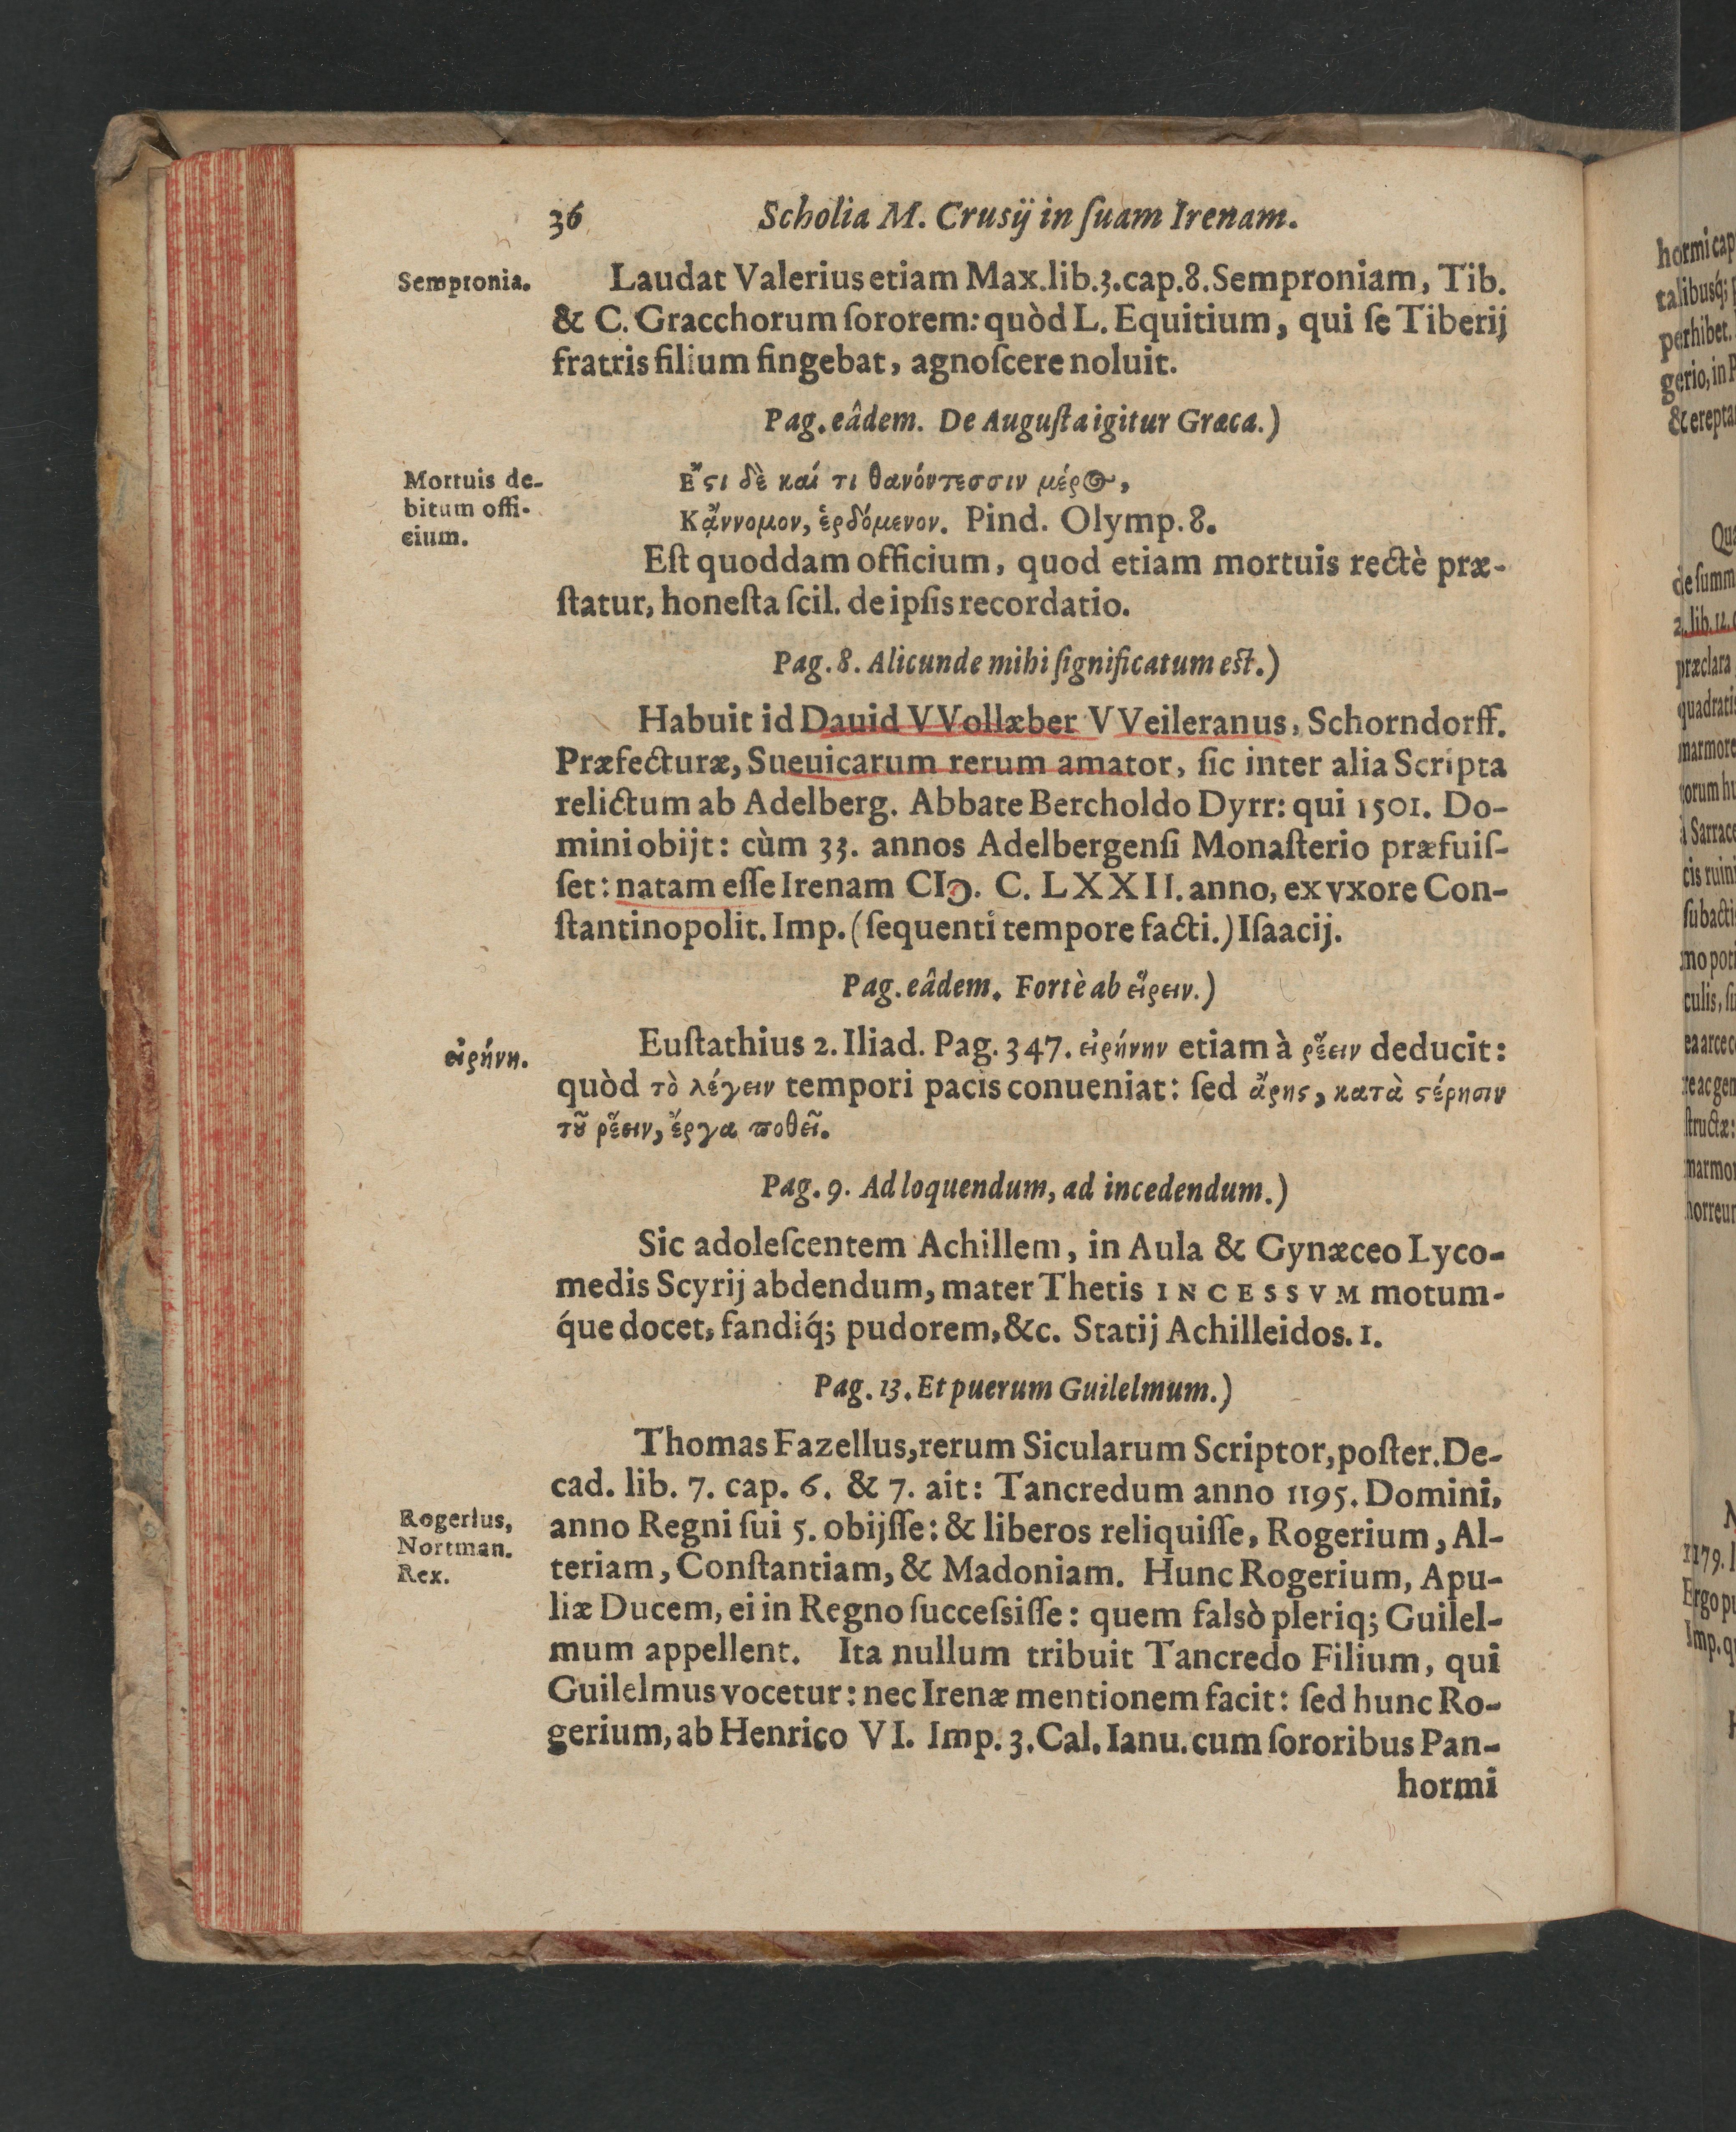 36 Scholia M. Crusij in ſuam Irenam.
Sempronia.
Laudat Valerius etiam Max. lib. 3. cap. 8. Semproniam, Tib.
& C. Gracchorum ſororem: quòd L. Equitium, qui ſe Tiberij
fratris filium fingebat, agnoſcere noluit.
Pag. eâdem. De Auguſta igitur Græca.)
Mortuis de-
bitum offi-
cium.
Ἔϛι δὲ καί τι θανόντεσσιν μέρος,
Κᾂννομον, ἑρδόμενον. Pind. Olymp. 8.
Eſt quoddam officium, quod etiam mortuis rectè præ-
ſtatur, honeſta ſcil. de ipſis recordatio.
Pag. 8. Alicunde mihi ſignificatum eſt.)
Habuit id Dauid VVollæber VVeileranus, Schorndorff.
Præfecturæ, Sueuicarum rerum amator, ſic inter alia Scripta
relictum ab Adelberg. Abbate Bercholdo Dyrr: qui 1501. Do-
mini obijt: cùm 33. annos Adelbergenſi Monaſterio præfuiſ-
ſet: natam eſſe Irenam CIↃ. C. LXXII. anno, ex vxore Con-
ſtantinopolit. Imp. (ſequenti tempore facti.) Iſaacij.
Pag. eâdem. Fortè ab εἴρειν.)
εἰρήνη.
Euſtathius 2. Iliad. Pag. 347. εἰρήνην etiam à ῥέειν deducit:
quòd τὸ λέγειν tempori pacis conueniat: ſed ἄρης, κατὰ ϛέρησιν
τοῦ ῥέειν, ἔργα ποθεῖ.
Pag. 9. Ad loquendum, ad incedendum.)
Sic adoleſcentem Achillem, in Aula & Gynæceo Lyco-
medis Scyrij abdendum, mater Thetis INCESSVM motum-
q́ue docet, fandiq́; pudorem, &c. Statij Achilleidos. 1.
Pag. 13. Et puerum Guilelmum.)
Thomas Fazellus, rerum Sicularum Scriptor, poſter. De-
cad. lib. 7. cap. 6. & 7. ait: Tancredum anno 1195. Domini,
Rogerius,
Nortman.
Rex.
anno Regni ſui 5. obijſſe: & liberos reliquiſſe, Rogerium, Al-
teriam, Conſtantiam, & Madoniam. Hunc Rogerium, Apu-
liæ Ducem, ei in Regno ſucceſsiſſe: quem falsò pleriq; Guilel-
mum appellent. Ita nullum tribuit Tancredo Filium, qui
Guilelmus vocetur: nec Irenæ mentionem facit: ſed hunc Ro-
gerium, ab Henrico VI. Imp. 3. Cal. Ianu. cum ſororibus Pan-
hormi